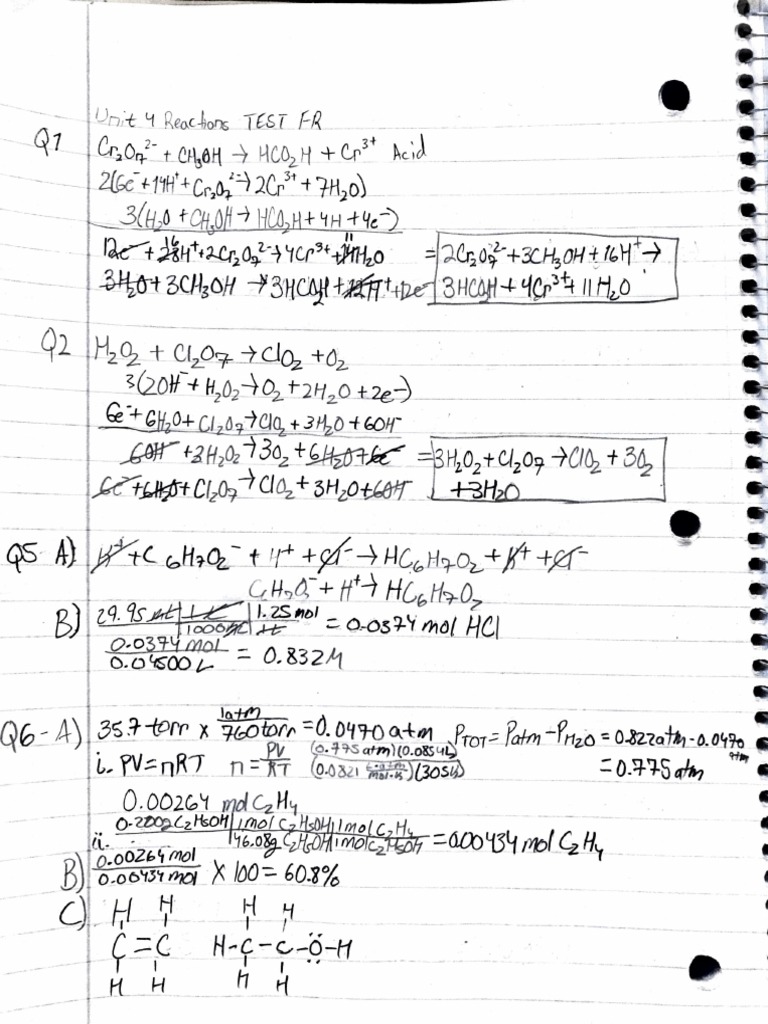 Unit 4 Reactions TEST FR
Q1 Cr₂O₇²⁻ + CH₃OH → HCO₂H + Cr³⁺ Acid
2(6e⁻ + 14H⁺ + Cr₂O₇²⁻ → 2Cr³⁺ + 7H₂O)
3(H₂O + CH₃OH → HCO₂H + 4H + 4e⁻)
12e⁻ + 16 28H⁺ + 2Cr₂O₇²⁻ → 4Cr³⁺ + 11 14H₂O = 2Cr₂O₇²⁻ + 3CH₃OH + 16H⁺ →
3H₂O + 3CH₃OH → 3HCO₂H + 12H⁺ + 12e⁻ 3HCO₂H + 4Cr³⁺ + 11H₂O
Q2 H₂O₂ + Cl₂O₇ → ClO₂ + O₂
3(2OH⁻ + H₂O₂ → O₂ + 2H₂O + 2e⁻)
6e⁻ + 6H₂O + Cl₂O₇ → ClO₂ + 3H₂O + 6OH⁻
6OH⁻ + 3H₂O₂ → 3O₂ + 6H₂O + 6e⁻ = 3H₂O₂ + Cl₂O₇ → ClO₂ + 3O₂
6e⁻ + 6H₂O + Cl₂O₇ → ClO₂ + 3H₂O + 6OH⁻ + 3H₂O
Q5 A) K⁺ + C₆H₇O₂⁻ + H⁺ + Cl⁻ → HC₆H₇O₂ + K⁺ + Cl⁻
C₆H₇O₂⁻ + H⁺ → HC₆H₇O₂
B) 29.95 mL | 1 L | 1.25 mol
1000 mL | 1L = 0.0374 mol HCl
0.0374 mol
0.04500 L = 0.832 M
Q6 - A) 35.7 torr × 1 atm / 760 torr = 0.0470 atm P_TOT = P_atm - P_H₂O = 0.822 atm - 0.0470 atm
i. PV = nRT n = PV/RT (0.775 atm)(0.0854 L) / (0.0821 L·atm/mol·K)(305 K) = 0.775 atm
0.00264 mol C₂H₄
ii. 0.200g C₂H₅OH | 1 mol C₂H₅OH | 1 mol C₂H₄
46.08g C₂H₅OH | 1 mol C₂H₅OH = 0.00434 mol C₂H₄
B) 0.00264 mol
0.00434 mol × 100 = 60.8%
C) H H H H
C = C H - C - C - O - H
H H H H